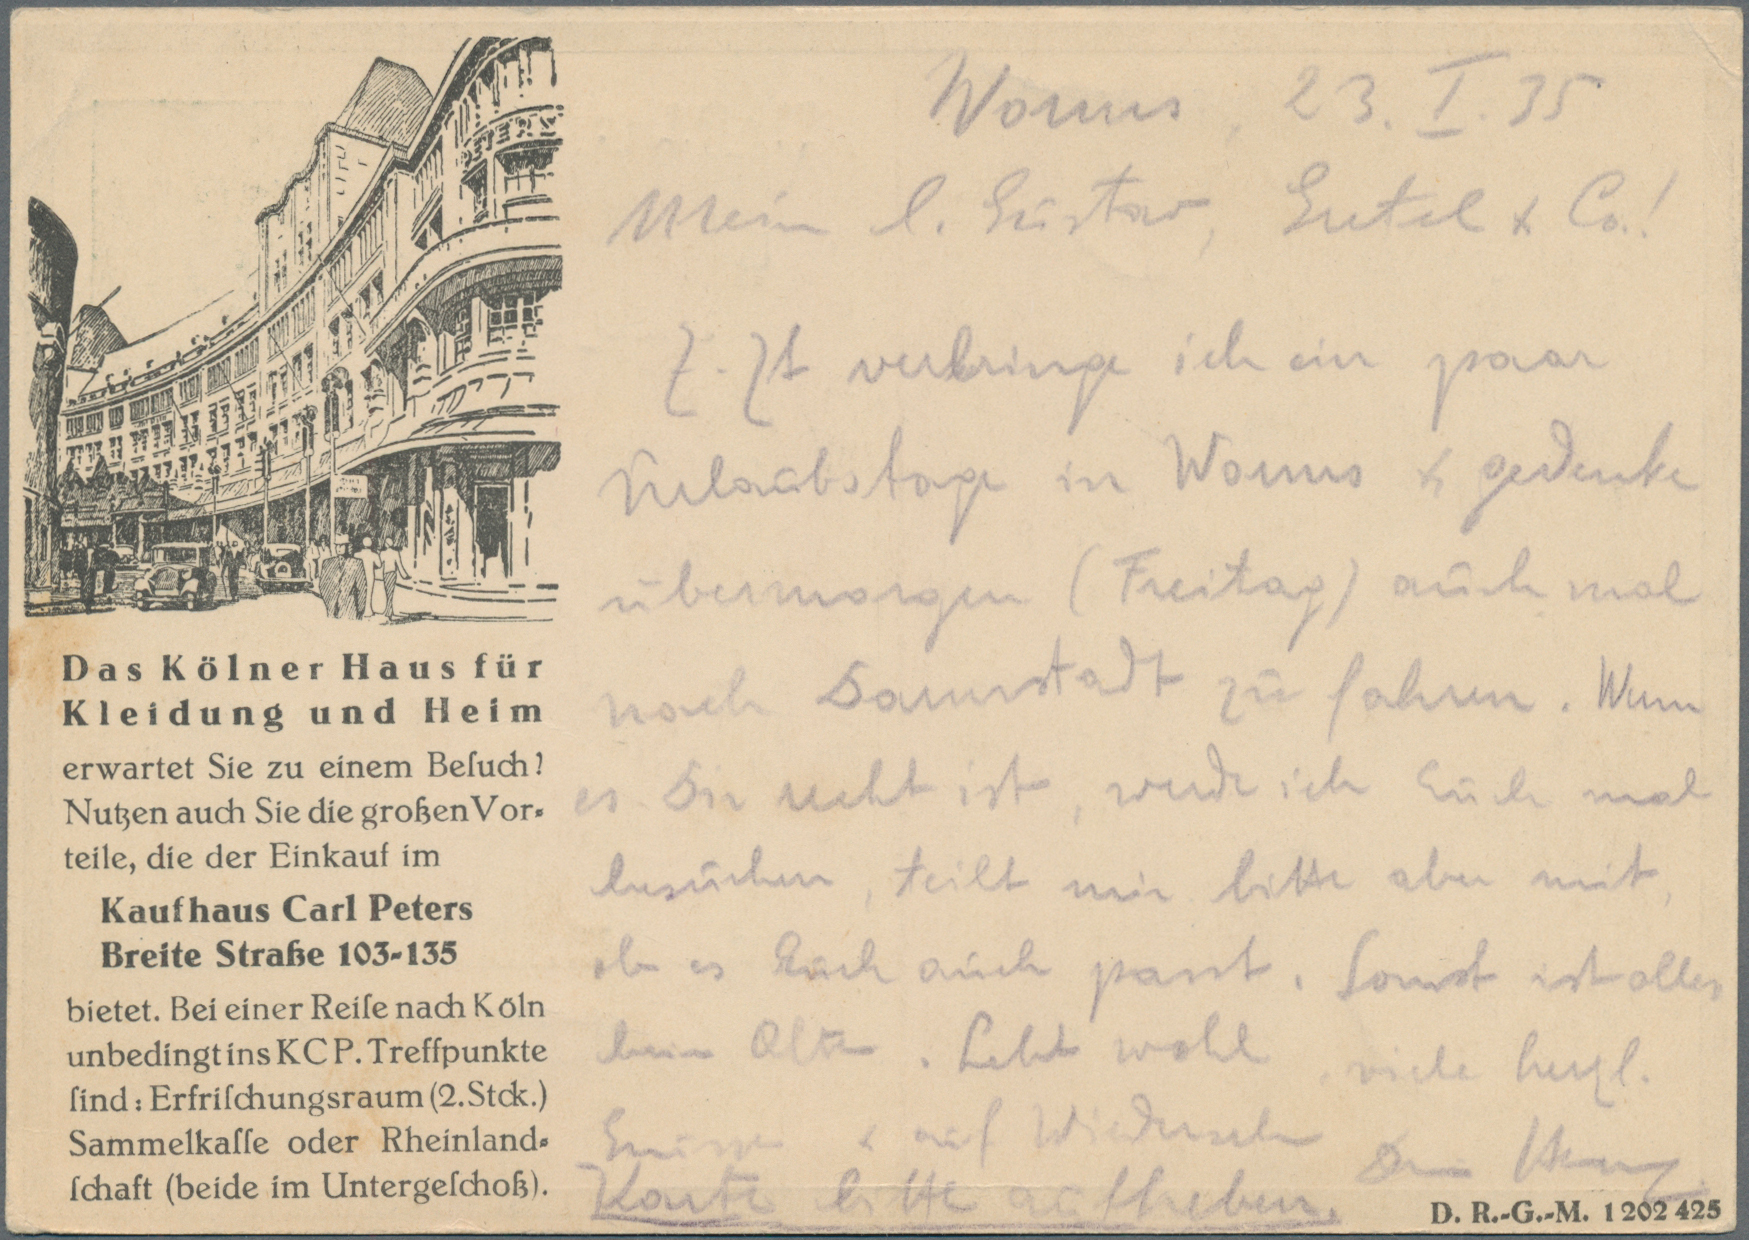 PETERS
Das Kölner Haus für
Kleidung und Heim
erwartet Sie zu einem Beſuch!
Nutzen auch Sie die großen Vor-
teile, die der Einkauf im
Kaufhaus Carl Peters
Breite Straße 103-135
bietet. Bei einer Reiſe nach Köln
unbedingt ins KCP. Treffpunkte
ſind: Erfriſchungsraum (2. Stck.)
Sammelkaſſe oder Rheinland-
ſchaft (beide im Untergeſchoß).
Worms, 23. I. 35
Mein l. Gustav, & Co.!
Z. Zt verbringe ich ein paar
Urlaubstage in Worms & gedenke
übermorgen (Freitag) auch mal
nach Darmstadt zu fahren. Wenn
es Dir recht ist, werde ich Euch mal
besuchen, teilt mir bitte aber mit,
ob es Euch auch passt. Sonst ist alles
beim Alten. Lebt wohl, viele herzl.
Grüsse & auf Wiedersehn
Dein
Karte bitte aufheben.
D. R.-G.-M. 1 202 425